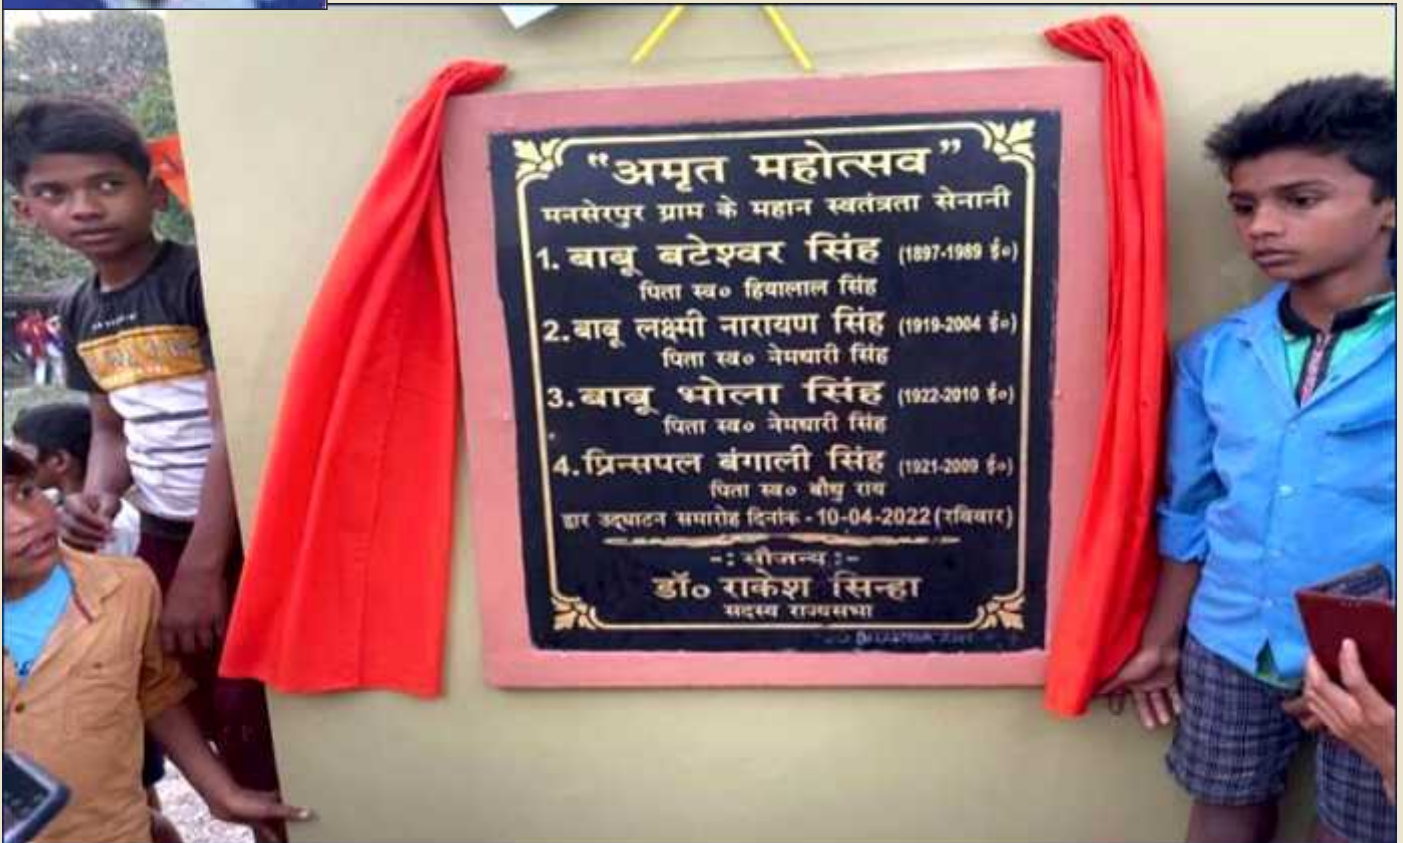 “अमृत महोत्सव”
मनसेरपुर ग्राम के महान स्वतंत्रता सेनानी
1. बाबू बटेश्वर सिंह (1897-1989 ई०)
पिता स्व० हियालाल सिंह
2. बाबू लक्ष्मी नारायण सिंह (1919-2004 ई०)
पिता स्व० नेमधारी सिंह
3. बाबू भोला सिंह (1922-2010 ई०)
पिता स्व० नेमधारी सिंह
4. प्रिन्सपल बंगाली सिंह (1921-2009 ई०)
पिता स्व० बौधु राय
द्वार उद्घाटन समारोह दिनांक - 10-04-2022 (रविवार)
-: सौजन्य :-
डॉ० राकेश सिन्हा
सदस्य राज्यसभा